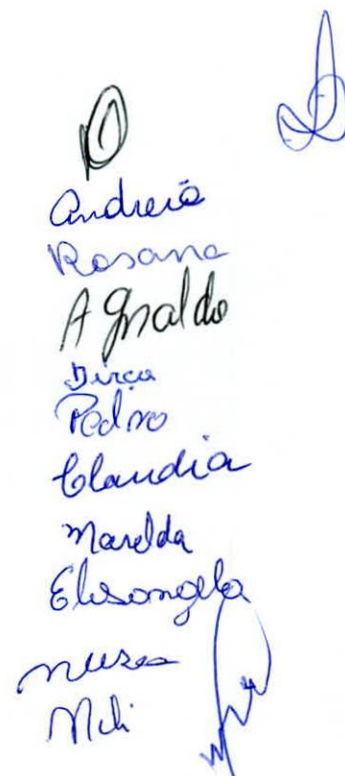 Andreia
Rosana
Agnaldo
Dirce
Pedro
Claudia
Marilda
Elisangela
Neusa